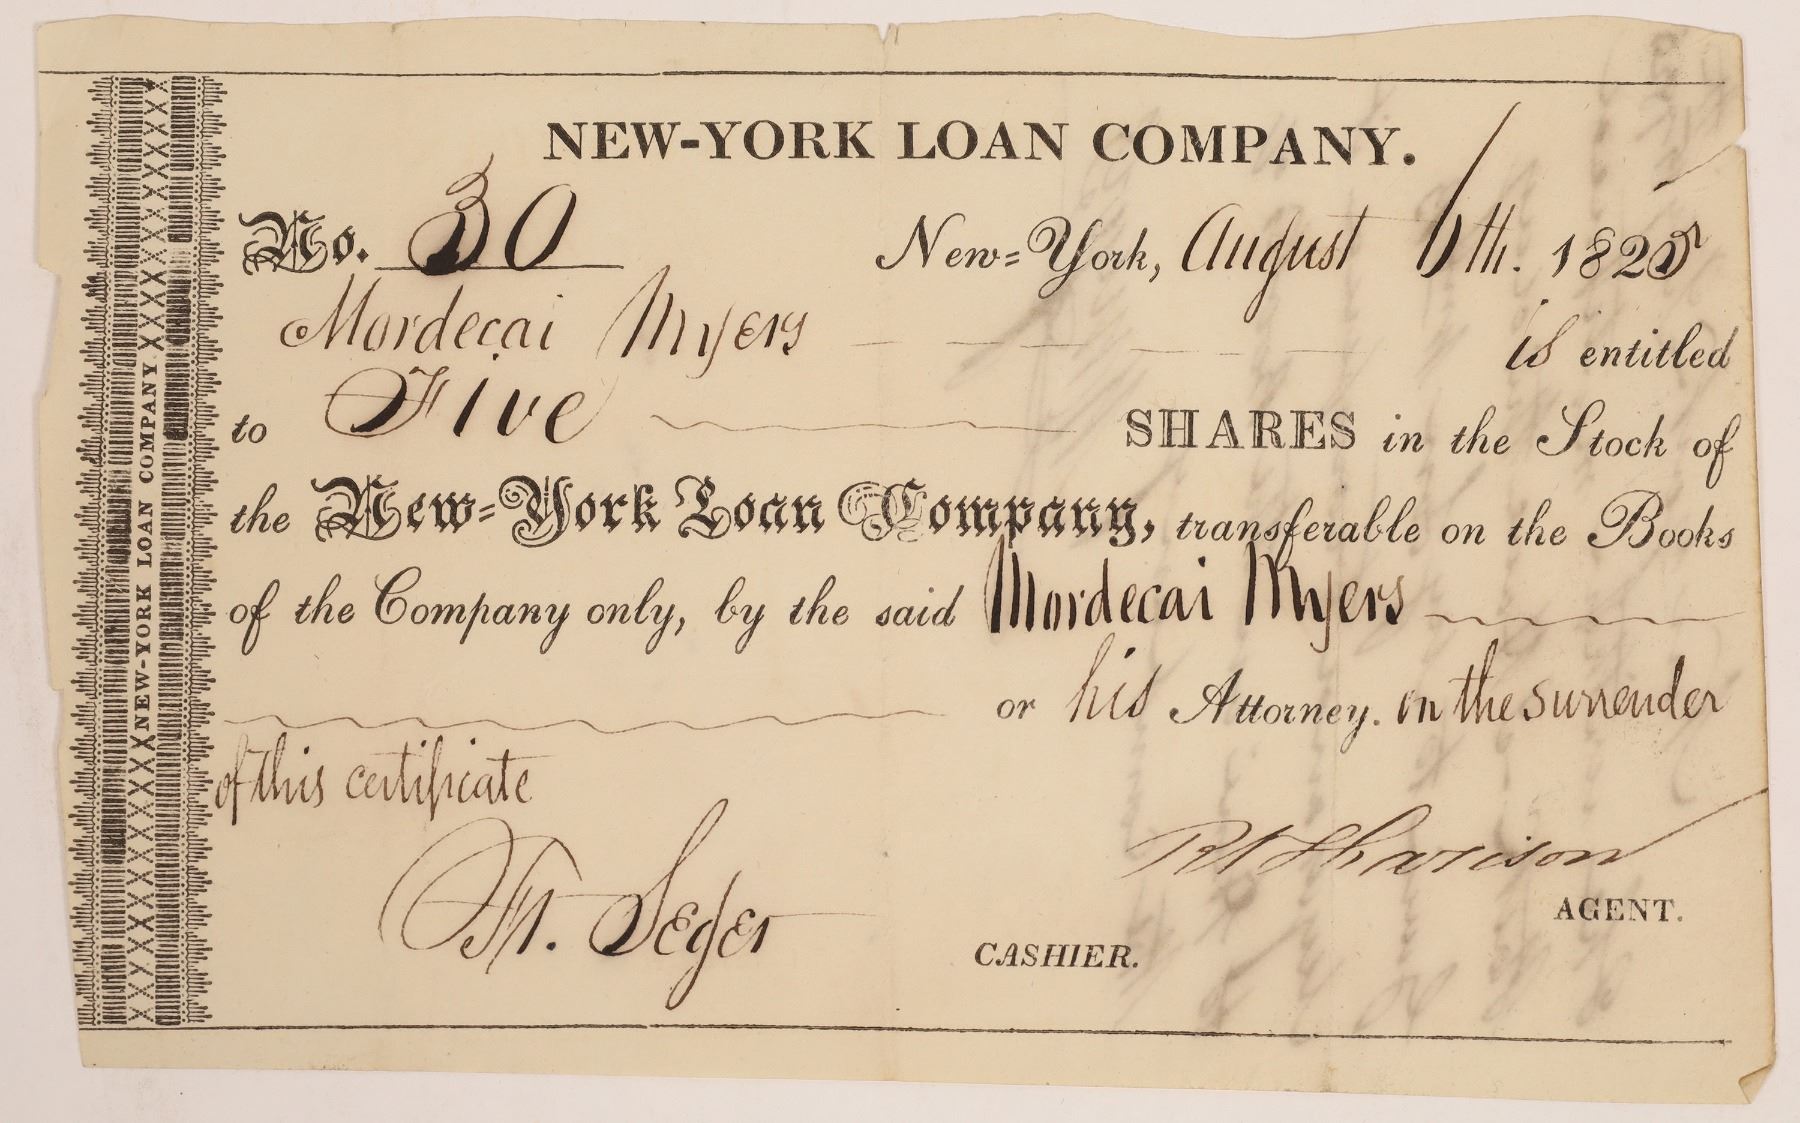 NEW-YORK LOAN COMPANY.
No. 30 New=York, August 6th. 1825
Mordecai Myers is entitled
to Five SHARES in the Stock of
the New=York Loan Company, transferable on the Books
of the Company only, by the said Mordecai Myers
or his Attorney. on the surrender
of this certificate
Harison
AGENT.
Seger
CASHIER.
XXXXXXX NEW-YORK LOAN COMPANY XXXXXXX